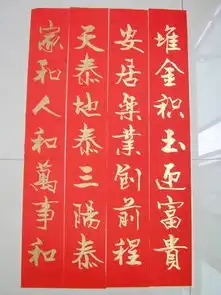 堆金积玉迎富貴
安居樂業創前程
天泰地泰三陽泰
家和人和萬事和